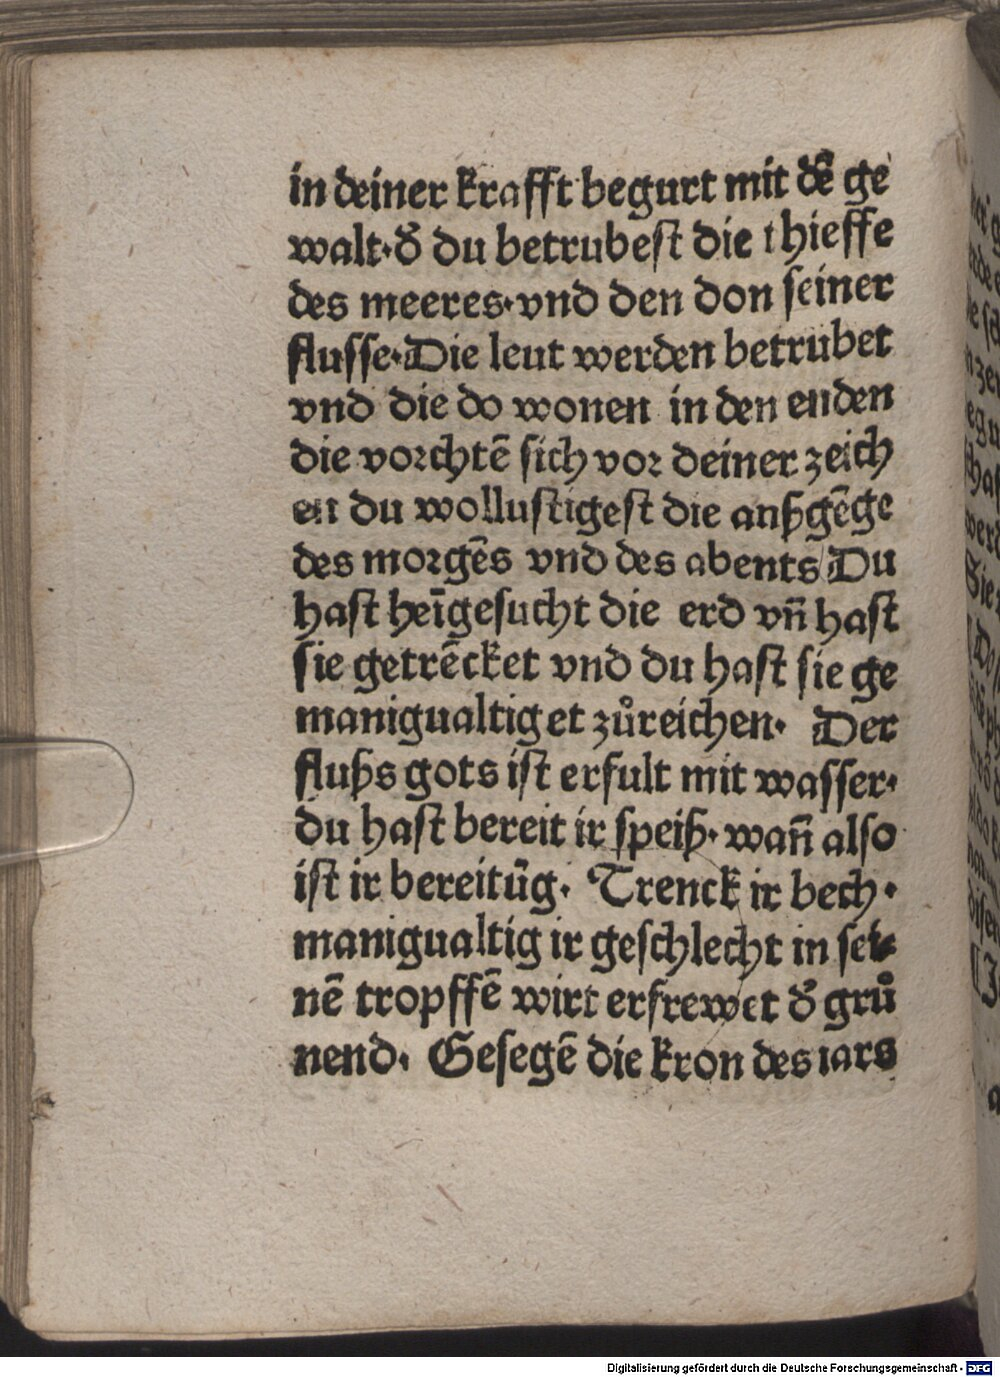 in deiner krafft begurt mit dē ge
walt·ď du betrubest die thieffe
des meeres·vnd den don seiner
flusse·Die leut werden betrubet
vnd die do wonen in den enden
die vorchtē sich vor deiner zeich
en du wollustigest die anßgēge
des morgēs vnd des abents Du
hast heīgesucht die erd vn̄ hast
sie getrēcket vnd du hast sie ge
manigualtiget zůreichen· Der
flußs gots ist erfult mit wasser·
du hast bereit ir speiß·wan̄ also
ist ir bereitūg· Trenck ir bech·
manigualtig ir geschlecht in sei⸗
nē tropffē wirt erfrewet ď grů
nend· Gesegē die kron des iars
Digitalisierung gefördert durch die Deutsche Forschungsgemeinschaft - DFG